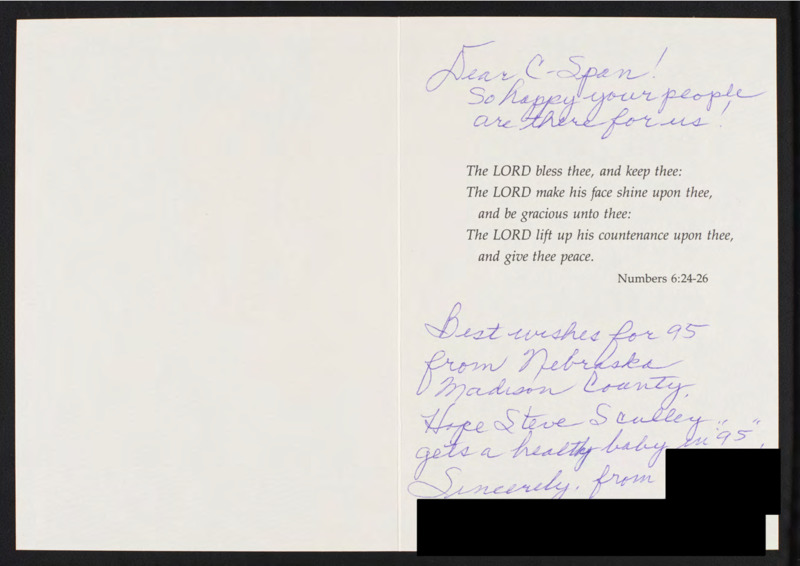 Dear C-Span!
So happy your people
are there for us!
The LORD bless thee, and keep thee:
The LORD make his face shine upon thee,
and be gracious unto thee:
The LORD lift up his countenance upon thee,
and give thee peace.
Numbers 6:24-26
Best wishes for 95
from Nebraska
Madison County.
Hope Steve Sculley
gets a healthy baby in "95".
Sincerely. from